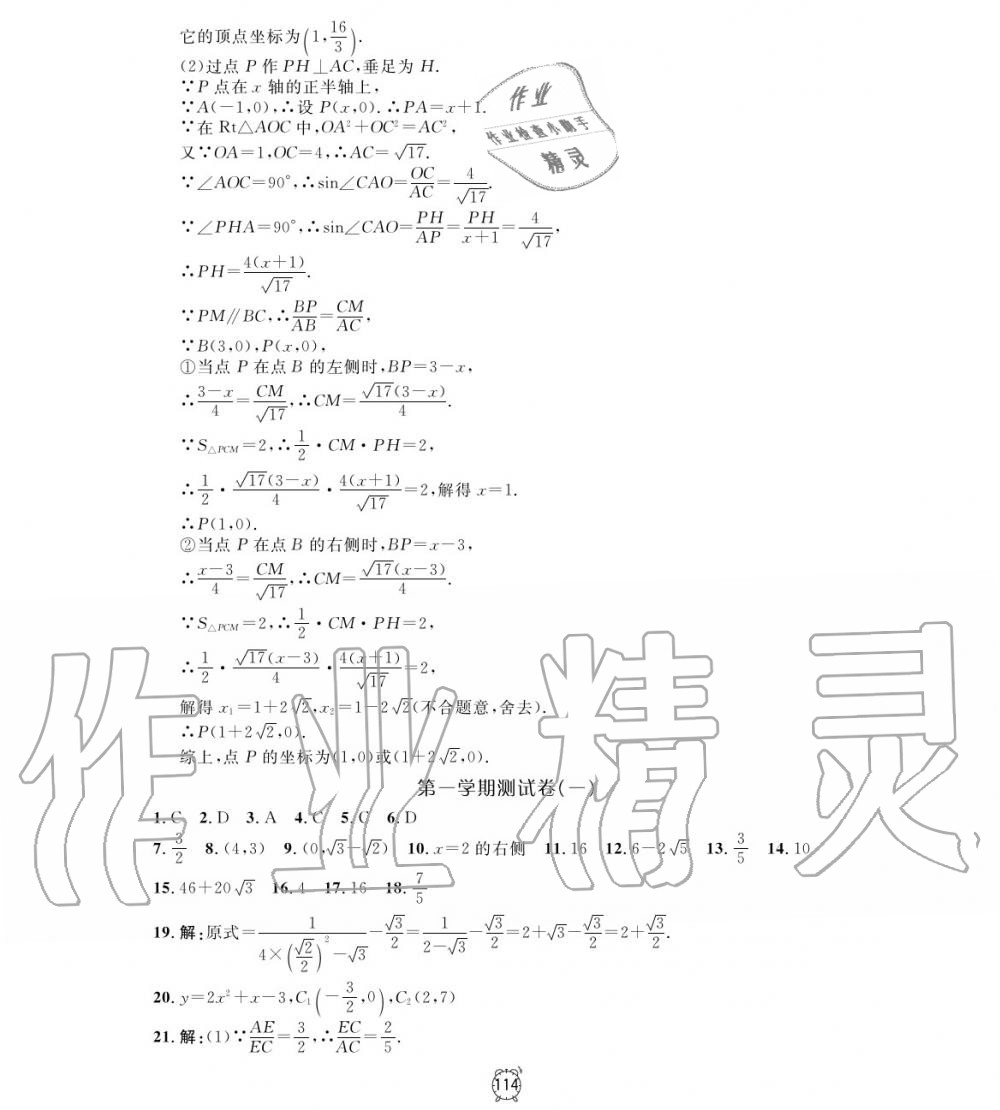 它的顶点坐标为(1,16/3).
(2)过点 P 作 PH⊥AC,垂足为 H.
∵P 点在 x 轴的正半轴上,
∵A(-1,0),∴设 P(x,0).∴PA=x+1.
∵在 Rt△AOC 中,OA²+OC²=AC²,
又∵OA=1,OC=4,∴AC=√17.
∵∠AOC=90°,∴sin∠CAO=OC/AC=4/√17.
∵∠PHA=90°,∴sin∠CAO=PH/AP=PH/(x+1)=4/√17,
∴PH=4(x+1)/√17.
∵PM∥BC,∴BP/AB=CM/AC,
∵B(3,0),P(x,0),
①当点 P 在点 B 的左侧时,BP=3-x,
∴(3-x)/4=CM/√17,∴CM=√17(3-x)/4.
∵S△PCM=2,∴1/2·CM·PH=2,
∴1/2·√17(3-x)/4·4(x+1)/√17=2,解得 x=1.
∴P(1,0).
②当点 P 在点 B 的右侧时,BP=x-3,
∴(x-3)/4=CM/√17,∴CM=√17(x-3)/4.
∵S△PCM=2,∴1/2·CM·PH=2,
∴1/2·√17(x-3)/4·4(x+1)/√17=2,
解得 x₁=1+2√2,x₂=1-2√2(不合题意,舍去).
∴P(1+2√2,0).
综上,点 P 的坐标为(1,0)或(1+2√2,0).
第一学期测试卷(一)
1.C 2.D 3.A 4.C 5.C 6.D
7.3/2 8.(4,3) 9.(0,√3-√2) 10.x=2 的右侧 11.16 12.6-2√5 13.3/5 14.10
15.46+20√3 16.4 17.16 18.7/5
19.解:原式=1/(4×(√2/2)²-√3)-√3/2=1/(2-√3)-√3/2=2+√3-√3/2=2+√3/2.
20.y=2x²+x-3,C₁(-3/2,0),C₂(2,7)
21.解:(1)∵AE/EC=3/2,∴EC/AC=2/5.
114
作业
作业检查小助手
精灵
作业精灵